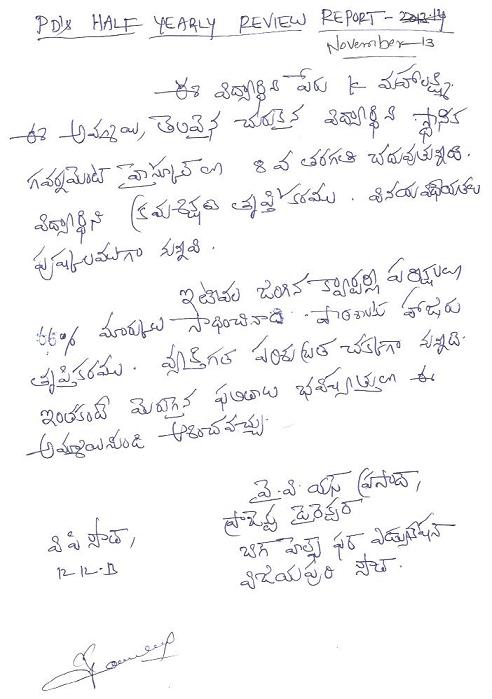 PD's HALF YEARLY REVIEW REPORT - 2013-14
November-13
ఈ విద్యార్థిని పేరు K మహాలక్ష్మి.
ఈ అమ్మాయి, తెలివైన చురుకైన విద్యార్థిని స్థానిక
గవర్నమెంట్ హైస్కూల్ లో 8 వ తరగతి చదువుతున్నది.
విద్యార్థిని క్రమశిక్షణ తృప్తికరము. వినయవిధేయతలు
పుష్కలముగా నున్నవి.
ఇటీవల జరిగిన క్వార్టర్లీ పరీక్షలలో
66% మార్కులు సాధించినాది. పాఠశాలకు హాజరు
తృప్తికరము. వ్యక్తిగత పరిశుభ్రత చక్కగా నున్నది.
ఇంతకంటే మెరుగైన ఫలితాలు భవిష్యత్తులో ఈ
అమ్మాయినుండి ఆశించవచ్చు.
వై. వి. యస్ ప్రసాద్,
ప్రాజెక్టు డైరెక్టర్
వి పి సౌత్,
బిగ్ హెల్ప్ ఫర్ ఎడ్యుకేషన్
12-12-13
విజయపురి సౌత్.